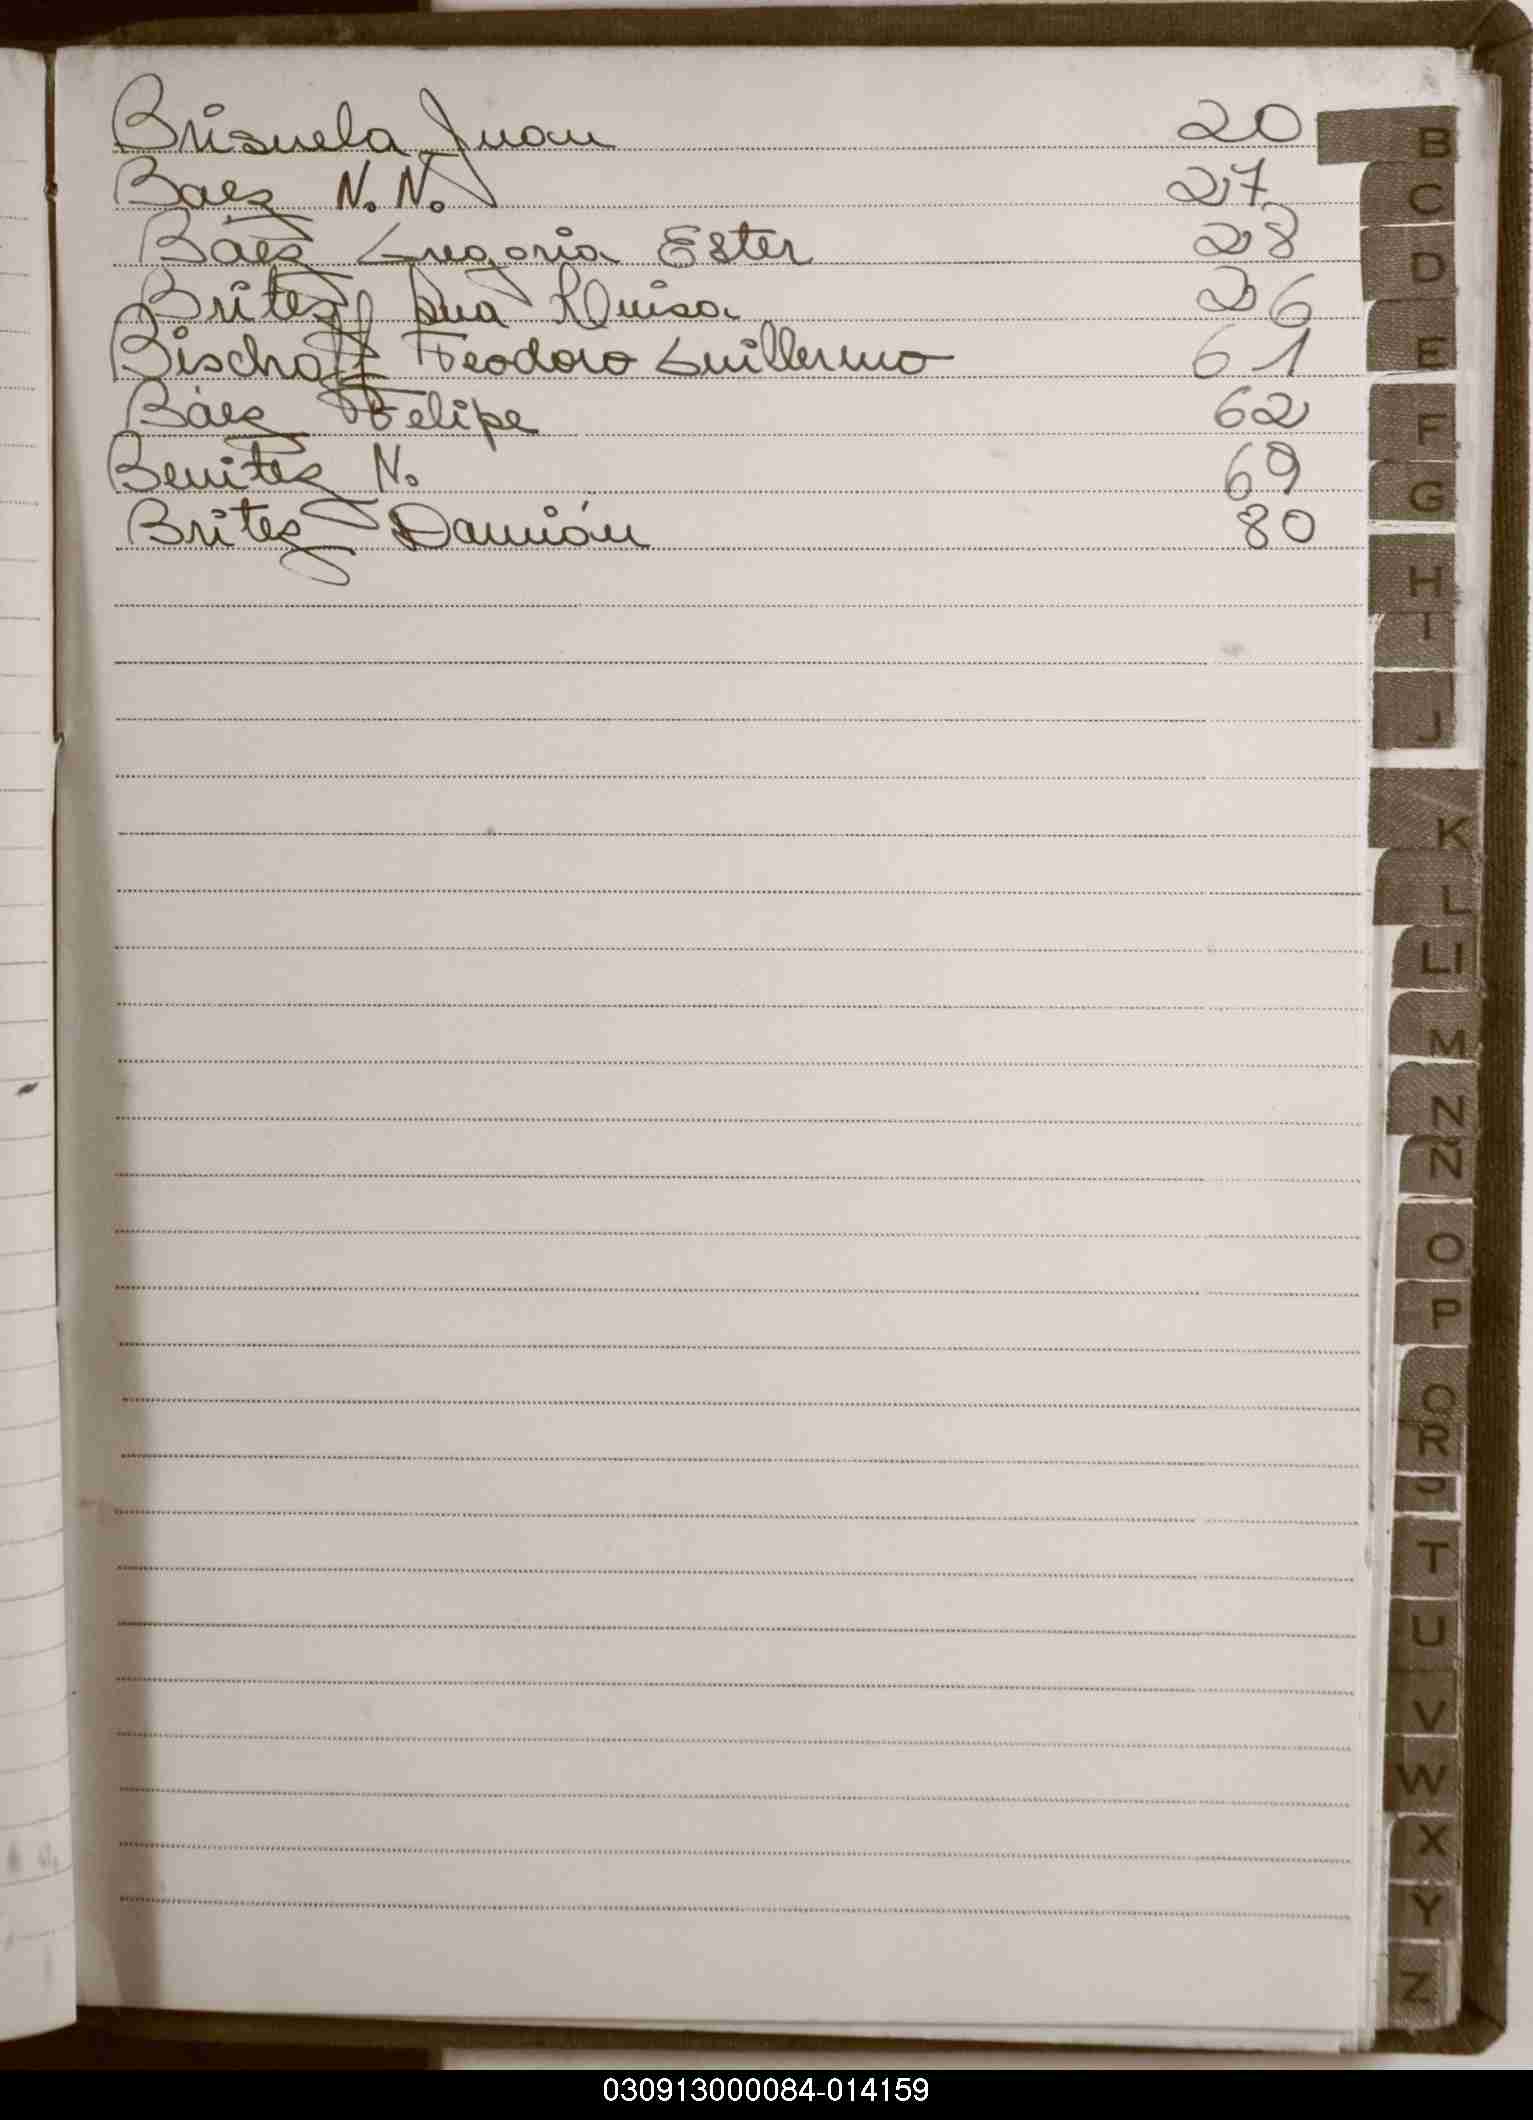 Brisuela Juan 20
Baez N. N. 27
Báez Gregoria Ester 28
Britez Ana Luisa 26
Bischoff Teodoro Guillermo 61
Báez Felipe 62
Benitez N. 69
Britez Damián 80
B
C
D
E
F
G
H
I
J
K
L
Ll
M
N
Ñ
O
P
Q
R
T
U
V
W
X
Y
Z
030913000084-014159